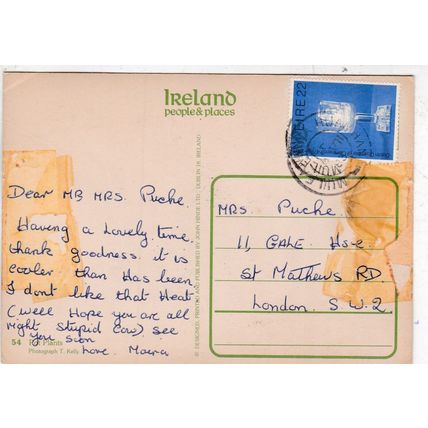 Ireland
people & places
ÉIRE 22
Dear MR MRS. Puche.
Having a Lovely time.
thank goodness. it is
cooler than Has been.
I dont like that Heat
(well Hope you are all
right, Stupid Cow) see
you soon
Love. Moira
54
Plants
Photograph T. Kelly
© DESIGNED, PRINTED AND PUBLISHED BY JOHN HINDE LTD., DUBLIN 18, IRELAND.
MRS. Puche.
11, GALE Hse.
St Mathews RD.
London. S.W.2.